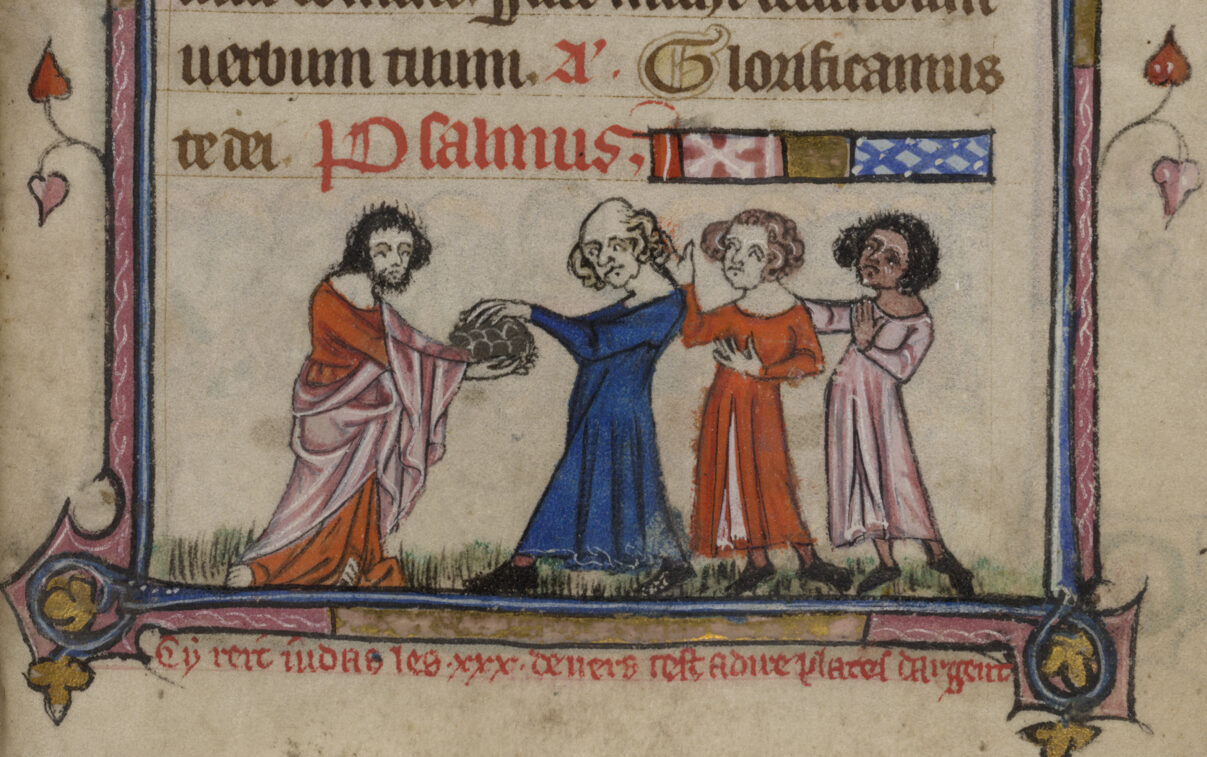 uerbum tuum. A'. Glorificamus
te dei Psalmus;
Cy recit iudas les .xxx. deners cest a dire plates dargent